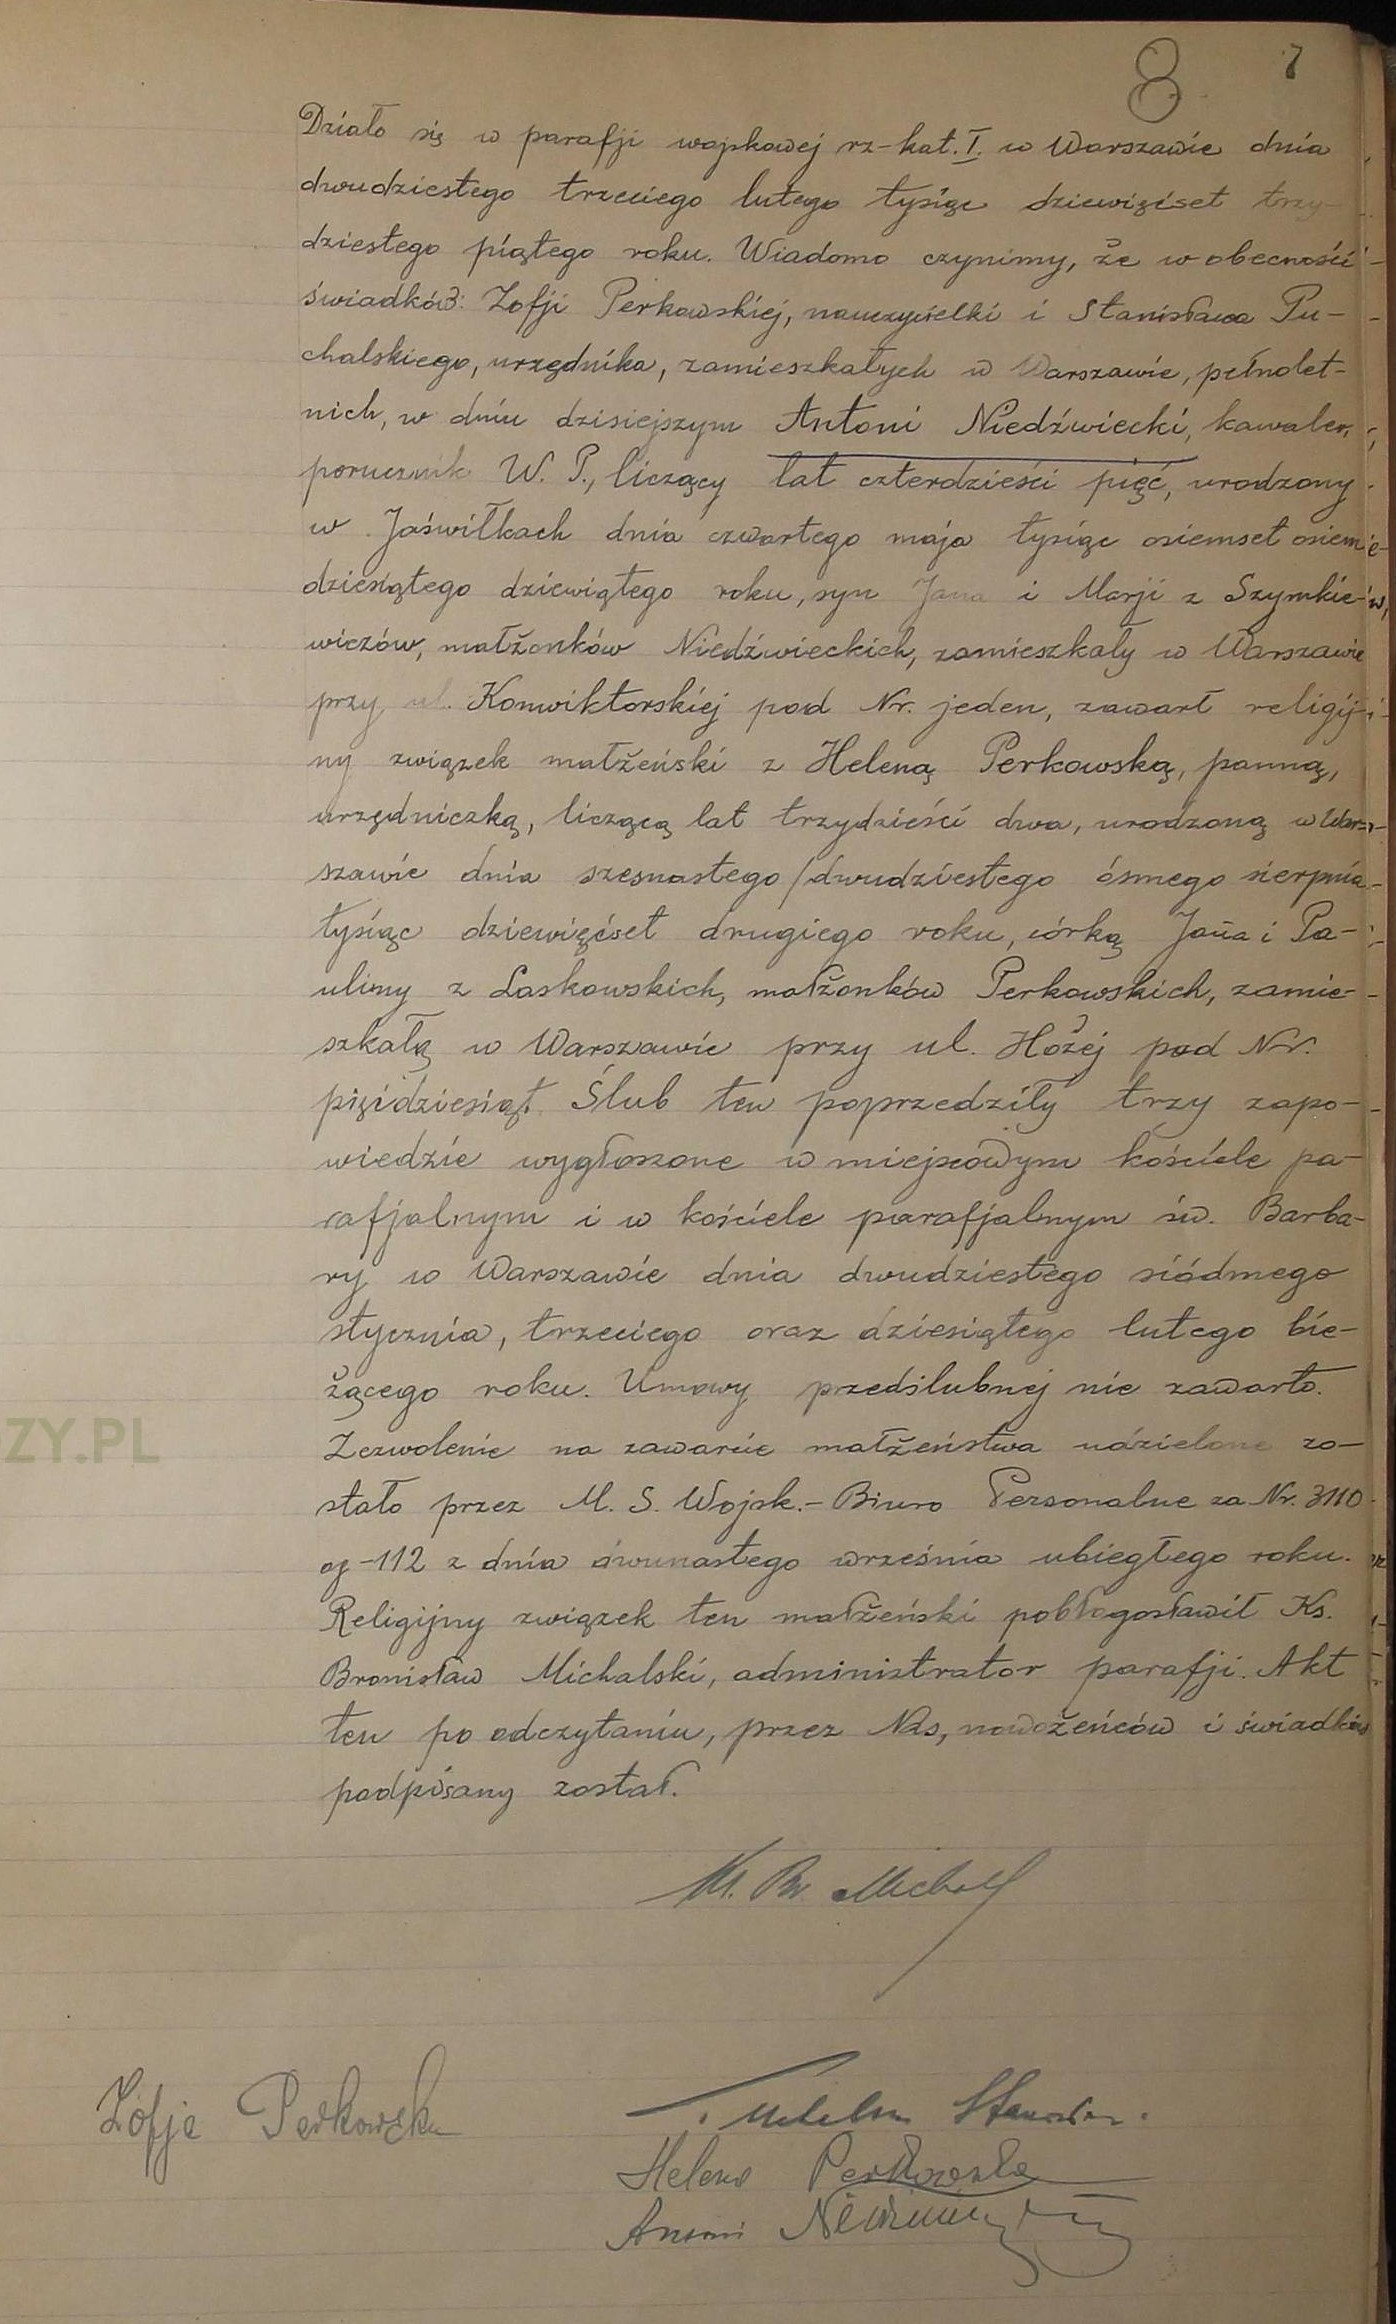 8 7
Działo się w parafji wojskowej rz-kat. I. w Warszawie dnia
dwudziestego trzeciego lutego tysiąc dziewięćset trzy-
dziestego piątego roku. Wiadomo czynimy, że w obecności
świadków: Zofji Perkowskiej, nauczycielki i Stanisława Pu-
chalskiego, urzędnika, zamieszkałych w Warszawie, pełnolet-
nich, w dniu dzisiejszym Antoni Niedźwiecki, kawaler,
porucznik W. P., liczący lat czterdzieści pięć, urodzony
w Jaświłkach dnia czwartego maja tysiąc osiemset osiem-
dziesiątego dziewiątego roku, syn Jana i Marji z Szymkie-
wiczów, małżonków Niedźwieckich, zamieszkały w Warszawie
przy ul. Konwiktorskiej pod Nr. jeden, zawarł religij-
ny związek małżeński z Heleną Perkowską, panną,
urzędniczką, liczącą lat trzydzieści dwa, urodzoną w War-
szawie dnia szesnastego/dwudziestego ósmego sierpnia
tysiąc dziewięćset drugiego roku, córką Jana i Pa-
uliny z Laskowskich, małżonków Perkowskich, zamie-
szkałą w Warszawie przy ul. Hożej pod Nr.
pięćdziesiąt. Ślub ten poprzedziły trzy zapo-
wiedzie wygłoszone w miejscowym kościele pa-
rafjalnym i w kościele parafjalnym św. Barba-
ry w Warszawie dnia dwudziestego siódmego
stycznia, trzeciego oraz dziesiątego lutego bie-
żącego roku. Umowy przedślubnej nie zawarto.
Zezwolenie na zawarcie małżeństwa udzielone zo-
stało przez M. S. Wojsk.- Biuro Personalne za Nr. 3110
og -112 z dnia dwunastego września ubiegłego roku.
Religijny związek ten małżeński pobłogosławił Ks.
Bronisław Michalski, administrator parafji. Akt
ten po odczytaniu, przez Nas, nowożeńców i świadków
podpisany został.
Ks. Br. Michalski
Zofja Perkowska
Helena Perkowska
Antoni Niedźwiecki
ZY.PL